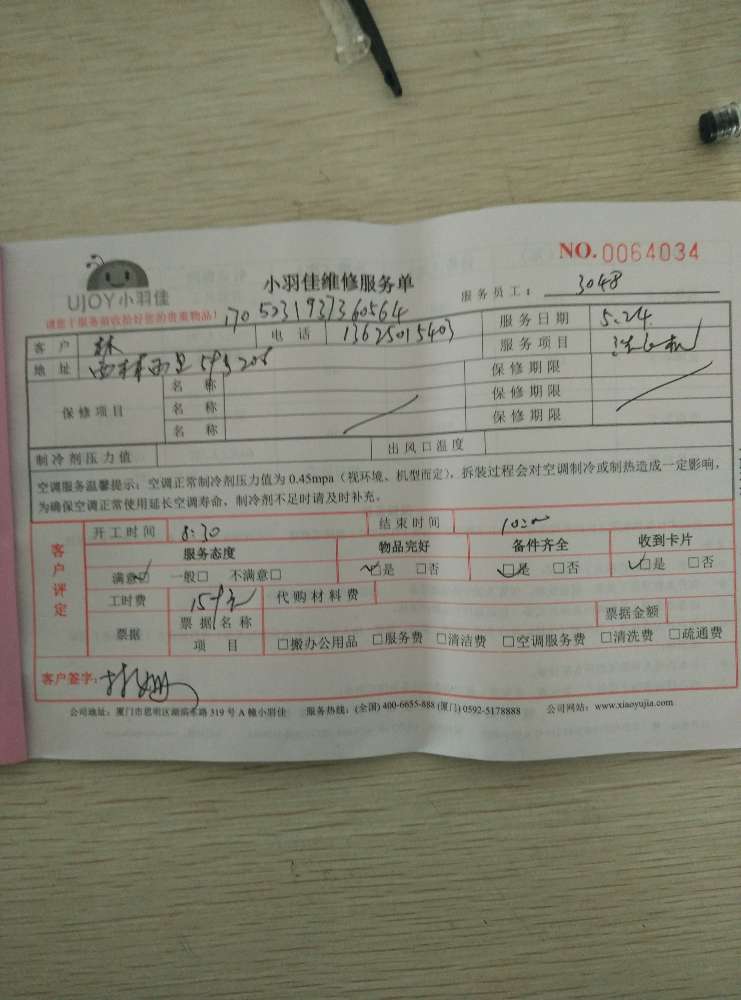 NO.0064034
UJOY小羽佳 小羽佳维修服务单 服务员工：3048
请您于服务前收拾好您的贵重物品！
客户 林 电话 13625015403 服务日期 5.24
地址 服务项目
保修项目 名称 保修期限
名称 保修期限
名称 保修期限
制冷剂压力值 出风口温度
空调服务温馨提示：空调正常制冷剂压力值为 0.45mpa（视环境、机型而定），拆装过程会对空调制冷或制热造成一定影响，
为确保空调正常使用延长空调寿命，制冷剂不足时请及时补充。
客户评定
开工时间 8:30 结束时间
服务态度 物品完好 备件齐全 收到卡片
满意☑ 一般□ 不满意□ ☑是 □否 ☑是 □否 ☑是 □否
工时费 代购材料费
票据 票据名称 票据金额
项目 □搬办公用品 □服务费 □清洁费 □空调服务费 □清洗费 □疏通费
客户签字：
公司地址：厦门市思明区湖滨东路 319 号 A 幢小羽佳 服务热线：(全国) 400-6655-888 (厦门) 0592-5178888 公司网站：www.xiaoyujia.com